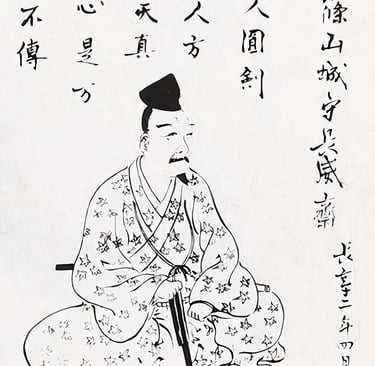 篠山城守長威齋
長享二年四月
人圓剣
人方
天真
心是
不傳